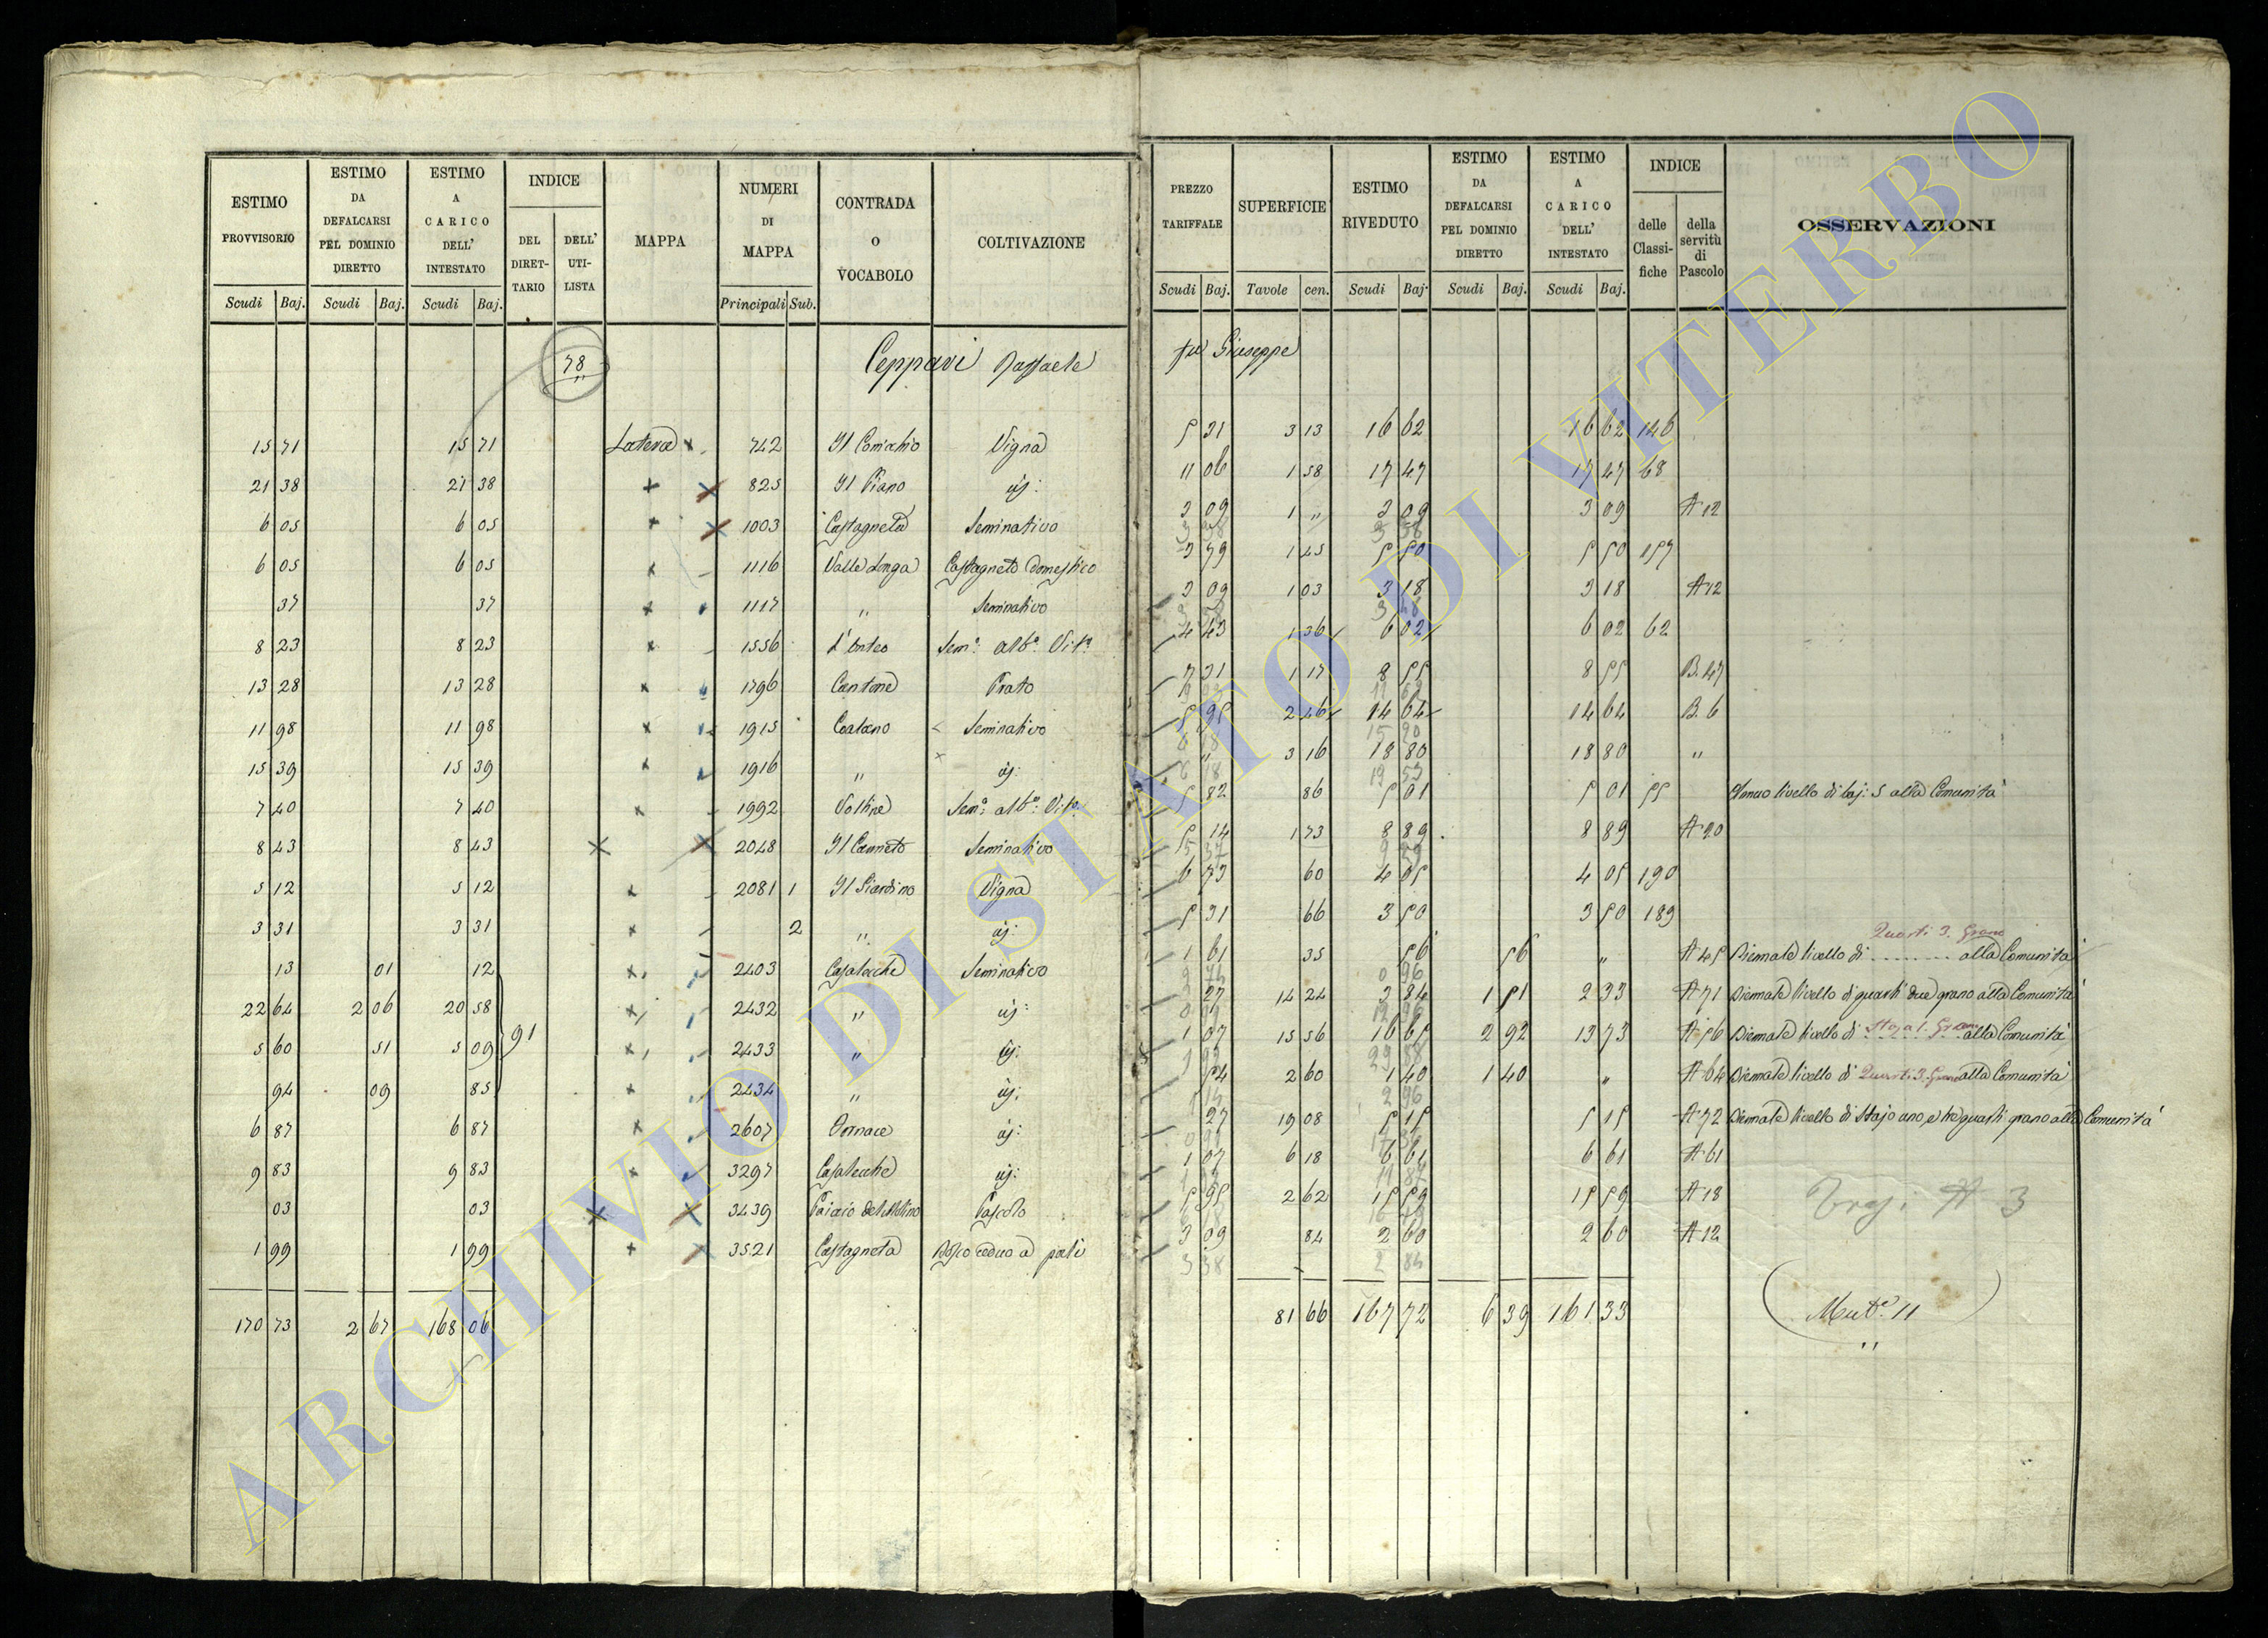 ESTIMO PROVVISORIO Scudi Baj. | ESTIMO DA DEFALCARSI PEL DOMINIO DIRETTO Scudi Baj. | ESTIMO A CARICO DELL' INTESTATO Scudi Baj. | INDICE DEL DIRETTARIO | DELL' UTILISTA | MAPPA | NUMERI DI MAPPA Principali Sub. | CONTRADA O VOCABOLO | COLTIVAZIONE
78 Ceppari Raffaele
15 71 | 15 71 | Latera | 742 | Il Comichio | Vigna
21 38 | 21 38 | 825 | Il Piano | id:
6 05 | 6 05 | 1003 | Castagneta | Seminativo
6 05 | 6 05 | 1116 | Valle Longa | Castagneto domestico
37 | 37 | 1117 | " | Seminativo
8 23 | 8 23 | 1556 | Sem.º alb.º Vit.º
13 28 | 13 28 | 1796 | Cantone | Prato
11 98 | 11 98 | 1915 | Seminativo
15 39 | 15 39 | 1916 | " | id:
7 40 | 7 40 | 1992 | Sem.º alb.º Vit.º
8 43 | 8 43 | 2048 | Il Canneto | Seminativo
5 12 | 5 12 | 2081 1 | Il Giardino | Vigna
3 31 | 3 31 | 2 | " | id:
13 | 01 | 12 | 2403 | Casalecchie | Seminativo
22 64 | 2 06 | 20 58 | 2432 | " | id:
91
5 60 | 51 | 5 09 | 2433 | " | id:
94 | 09 | 85 | 2434 | " | id:
6 87 | 6 87 | 2607 | Fornace | id:
9 83 | 9 83 | 3297 | Casalecchie | id:
03 | 03 | 3439 | del Molino | Pascolo
1 99 | 1 99 | 3521 | Castagneta | Bosco ceduo a pali
170 73 | 2 67 | 168 06
PREZZO TARIFFALE Scudi Baj. | SUPERFICIE Tavole cen. | ESTIMO RIVEDUTO Scudi Baj. | ESTIMO DA DEFALCARSI PEL DOMINIO DIRETTO Scudi Baj. | ESTIMO A CARICO DELL' INTESTATO Scudi Baj. | INDICE delle Classifiche | della servitù di Pascolo | OSSERVAZIONI
fu Giuseppe
5 31 | 3 13 | 16 62 | 16 62 | 146
11 06 | 1 58 | 17 47 | 17 47 | 68
3 09 | 1 " | 3 09 | 3 09 | A 12
3 79 | 1 45 | 5 50 | 5 50 | 157
3 09 | 1 03 | 3 18 | 3 18 | A 12
4 43 | 1 36 | 6 02 | 6 02 | 62
7 31 | 1 17 | 8 55 | 8 55 | B. 47
5 95 | 2 46 | 14 64 | 14 64 | B. 6
" | 3 16 | 18 80 | 18 80 | "
5 82 | 86 | 5 01 | 5 01 | 55 | Annuo livello di baj: 5 alla Comunità
5 14 | 1 73 | 8 89 | 8 89 | A 20
6 73 | 60 | 4 05 | 4 05 | 190
5 31 | 66 | 3 50 | 3 50 | 189
Quarti 3. Grano
1 61 | 35 | 56 | 56 | " | A 45 | Biennale livello di . . . . . . . alla Comunità
27 | 14 24 | 3 84 | 1 51 | 2 33 | A 71 | Biennale livello di quarti due grano alla Comunità
1 07 | 15 56 | 16 65 | 2 92 | 13 73 | A 56 | Biennale livello di Staja 1. Grano alla Comunità
54 | 2 60 | 1 40 | 1 40 | " | A 64 | Biennale livello di Quarti 3. Grano alla Comunità
27 | 19 08 | 5 15 | 5 15 | A 72 | Biennale livello di Stajo uno, e tre quarti grano alla Comunità
1 07 | 6 18 | 6 61 | 6 61 | A 61
5 95 | 2 62 | 15 59 | 15 59 | A 18
3 09 | 84 | 2 60 | 2 60 | A 12
3 38 | 2 84
81 66 | 167 72 | 6 39 | 161 33
Mut.e 11
ARCHIVIO DI STATO DI VITERBO